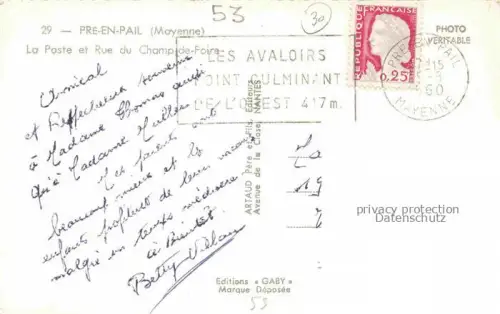 53
30
29 — PRE-EN-PAIL (Mayenne)
La Poste et Rue du Champ-de-Foire
PHOTO
VERITABLE
LES AVALOIRS
POINT CULMINANT
DE L'OUEST 417m.
REPUBLIQUE FRANÇAISE
0,25
PRE-EN-PAIL
15
60
MAYENNE
Amical
et Respectueux souvenir
à Madame Thomas ainsi
qu'à Madame
Mes parents vont
beaucoup mieux et les
enfants profitent de leur vacances
malgré un temps médiocre
à Bientôt
Betty
ARTAUD Père et Fils, Editeurs
Avenue de la Close, NANTES
19
privacy protection
Datenschutz
Editions « GABY »
Marque Déposée
53